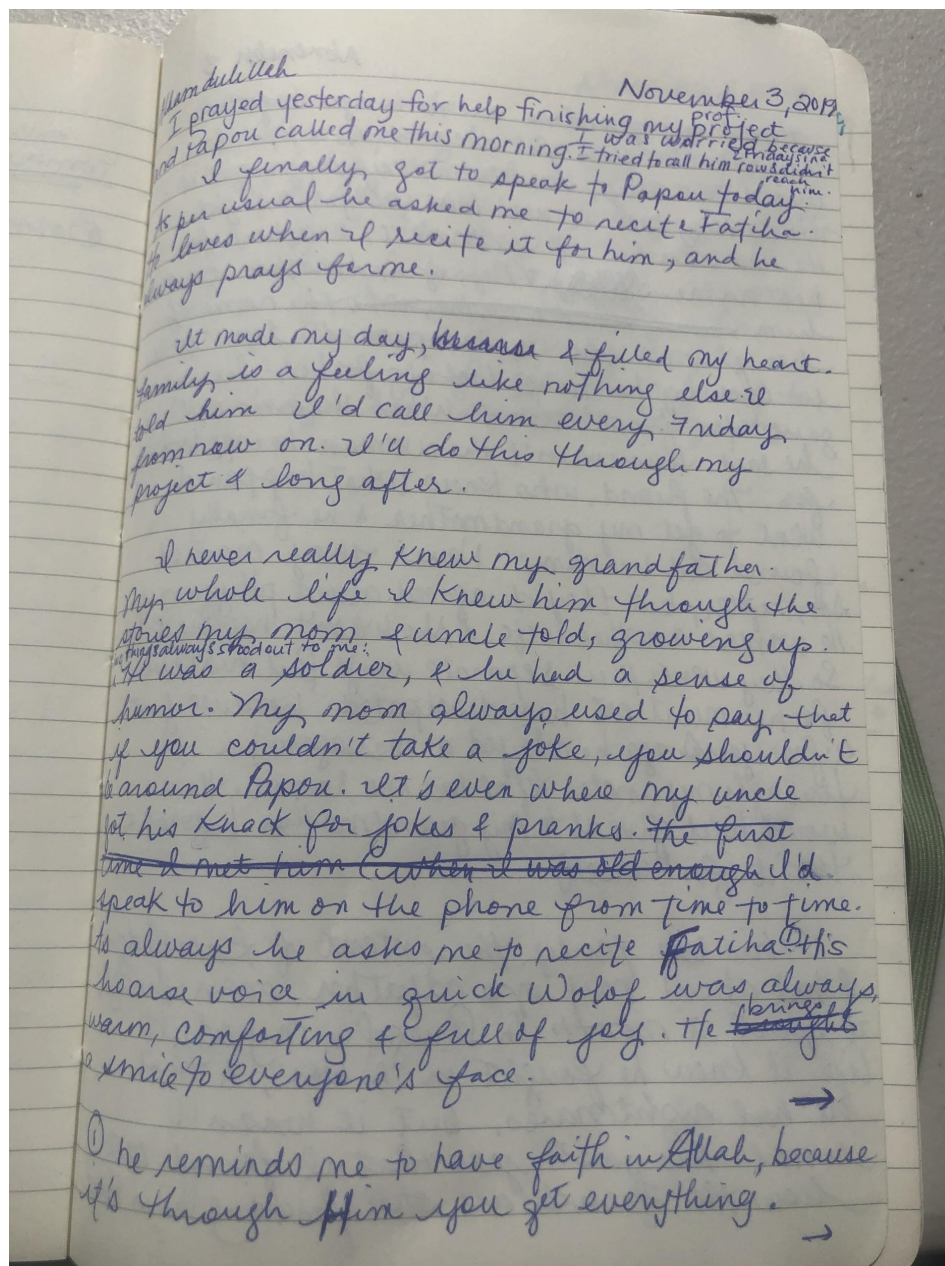 Alhamdulillah
November 3, 2019
I prayed yesterday for help finishing my prof. project
and Papou called me this morning. I was worried because
I tried to call him 2 Fridays in a row & didn't
reach him.
I finally got to speak to Papou today.
As per usual he asked me to recite Fatiha.
He loves when I recite it for him, and he
always prays for me.
It made my day, because & filled my heart.
Family is a feeling like nothing else. I
told him I'd call him every Friday
from now on. I'll do this through my
project & long after.
I never really knew my grandfather.
My whole life I knew him through the
stories my mom & uncle told, growing up.
two things always stood out to me:
He was a soldier, & he had a sense of
humor. My mom always used to say that
if you couldn't take a joke, you shouldn't
be around Papou. It's even where my uncle
got his knack for jokes & pranks. The first
time I met him (when I was old enough I'd
speak to him on the phone from time to time.
As always he asks me to recite Fatiha.① His
hoarse voice in quick Wolof was always
warm, comforting & full of joy. He brought brings
a smile to everyone's face.
→
① he reminds me to have faith in Allah, because
it's through Him you get everything.
→